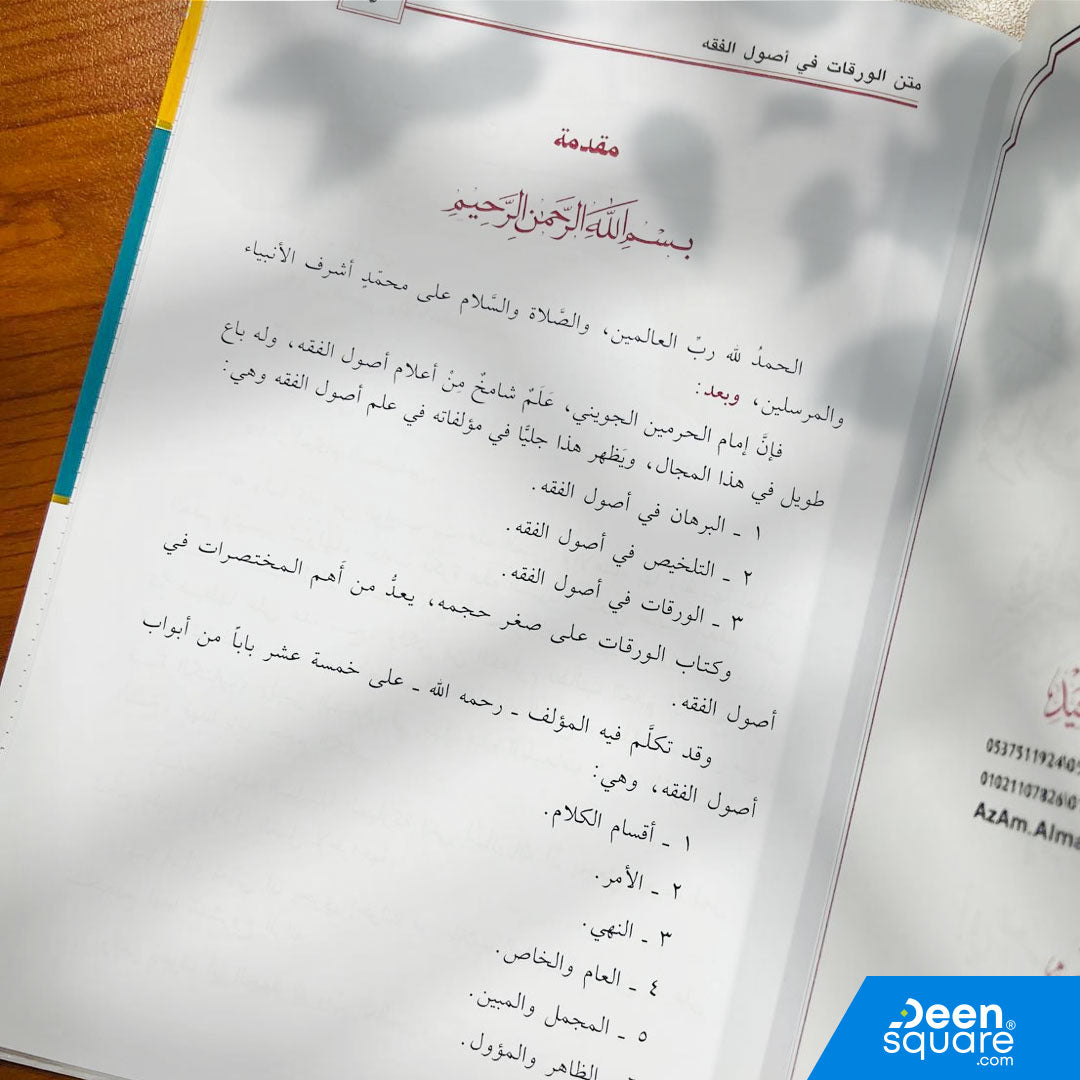 متن الورقات في أصول الفقه
مقدمة
بِسْمِ اللَّهِ الرَّحْمَنِ الرَّحِيمِ
الحمدُ لله ربِّ العالمين، والصَّلاة والسَّلام على محمّدٍ أشرف الأنبياء
والمرسلين، وبعد:
فإنَّ إمام الحرمين الجويني، عَلَمٌ شامخٌ مِنْ أعلام أصول الفقه، وله باع
طويل في هذا المجال، ويَظهر هذا جليًّا في مؤلفاته في علم أصول الفقه وهي:
١ ـ البرهان في أصول الفقه.
٢ ـ التلخيص في أصول الفقه.
٣ ـ الورقات في أصول الفقه.
وكتاب الورقات على صغر حجمه، يعدُّ من أَهم المختصرات في
أصول الفقه.
وقد تكلَّم فيه المؤلف ـ رحمه الله ـ على خمسة عشر باباً من أبواب
أصول الفقه، وهي:
١ ـ أقسام الكلام.
٢ ـ الأمر.
٣ ـ النهي.
٤ ـ العام والخاص.
٥ ـ المجمل والمبين.
الظاهر والمؤول.
0537511924
01021107826
AzAm.Alma
Deen
square®
.com